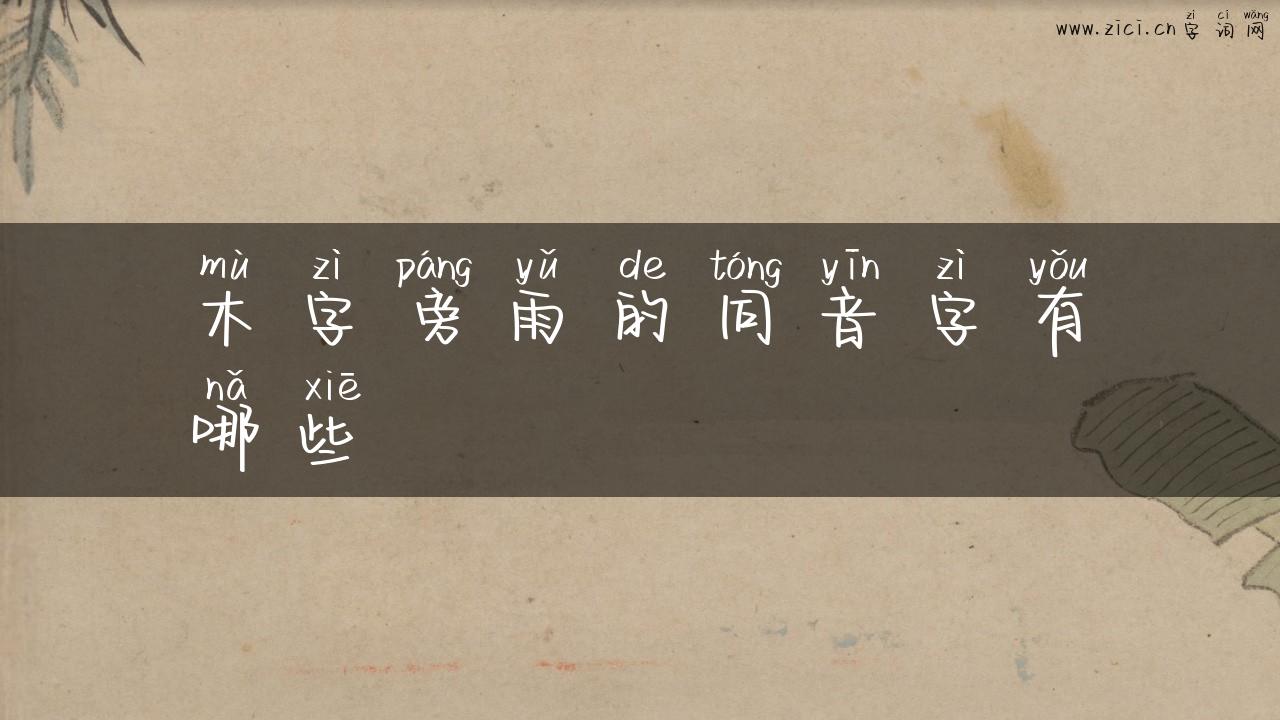 zì cí wǎng
www.zici.cn 字词网
mù zì páng yǔ de tóng yīn zì yǒu
木字旁雨的同音字有
nǎ xiē
哪些